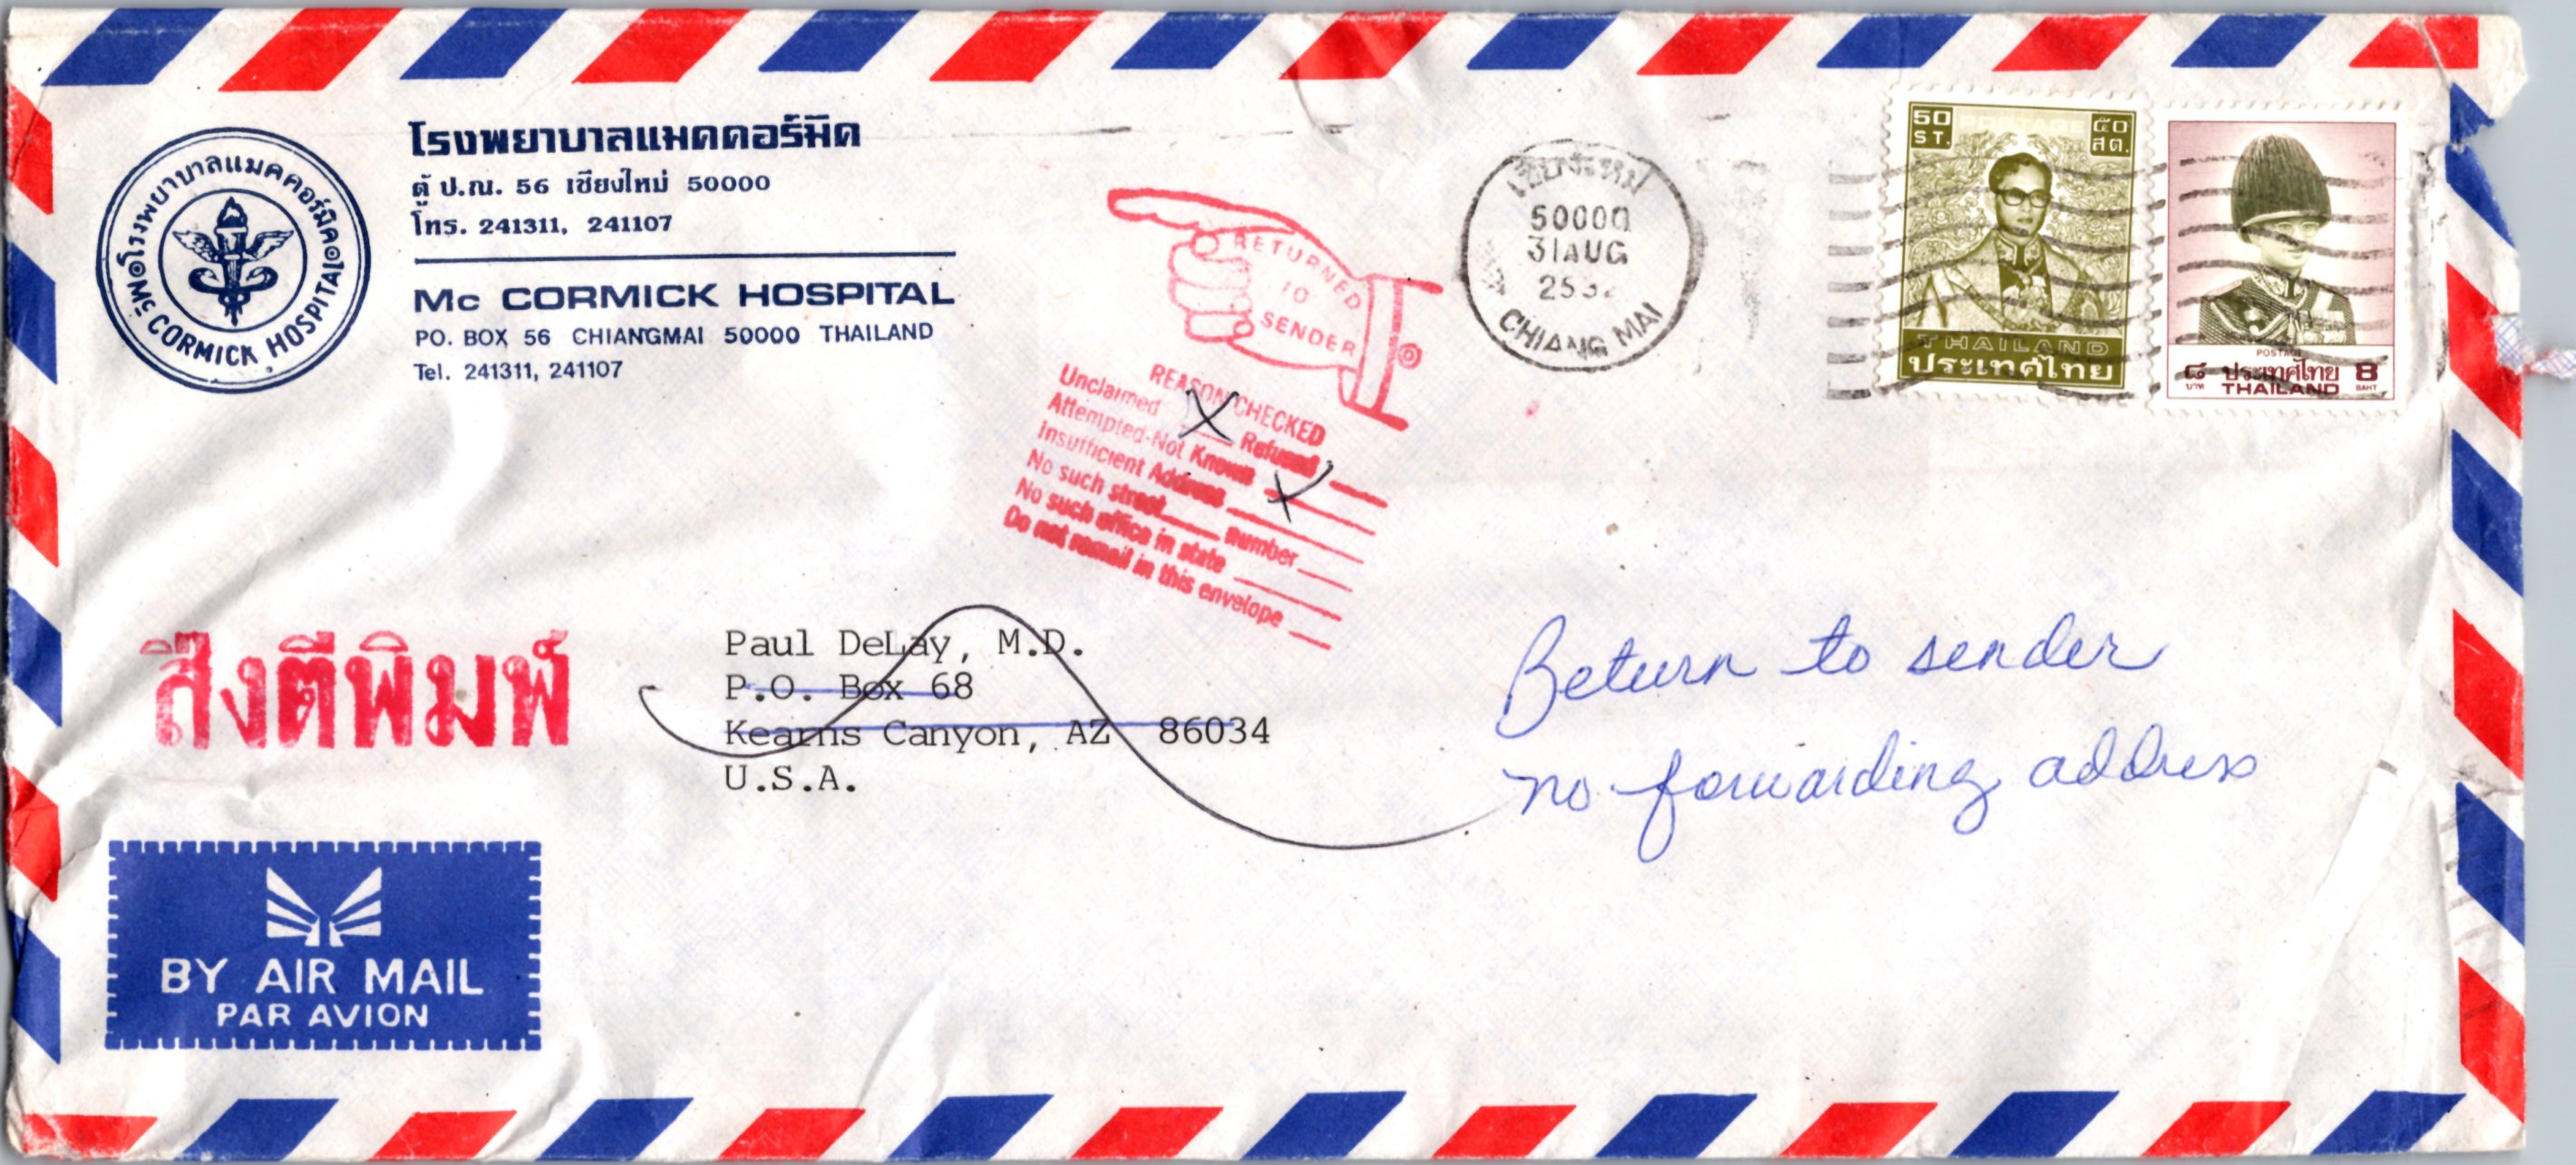 โรงพยาบาลแมคคอร์มิค
ตู้ ป.ณ. 56 เชียงใหม่ 50000
โทร. 241311, 241107
Mc CORMICK HOSPITAL
PO. BOX 56 CHIANGMAI 50000 THAILAND
Tel. 241311, 241107
โรงพยาบาลแมคคอร์มิค
Mc CORMICK HOSPITAL
RETURNED
TO
SENDER
REASON CHECKED
Unclaimed X Refused
Attempted-Not Known X
Insufficient Address
No such street number
No such office in state
Do not remail in this envelope
เชียงใหม่
50000
31 AUG
CHIANG MAI
50 ST. POSTAGE ๕๐ สต.
THAILAND
ประเทศไทย
POSTAGE
๘ บาท ประเทศไทย 8 BAHT
THAILAND
สิ่งตีพิมพ์
Paul DeLay, M.D.
P.O. Box 68
Kearns Canyon, AZ 86034
U.S.A.
Return to sender
no forwarding address
BY AIR MAIL
PAR AVION